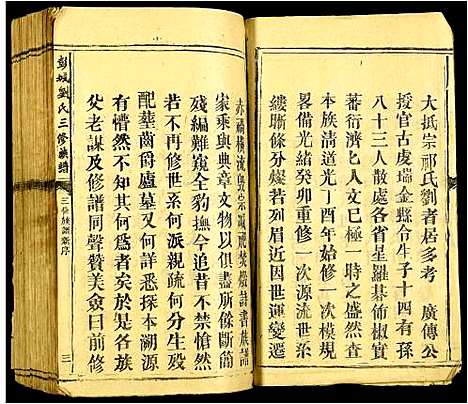 大抵宗祁氏劉者居多考　廣傳公
授官古虔瑞金縣令生子十四有孫
八十三人散處各省星羅碁佈椒實
蕃衍濟匕人文極一時之盛然自
本族清道光丁酉年始修一次模規
畧備光緒癸卯重修一次源流世系
縷晰條分燦若列眉近因世運變遷
赤禍橫流毀宗滅祀焚燬詩書族譜
家乘與典章文物以俱盡所餘斷簡
殘編難窺全豹撫今追昔不禁愴然
若不再修世系何派親疏何分生殁
配塟齒爵廬墓又何詳悉探本溯源
有懵然不知其何爲者矣於是各族
父老謀及同聲贊美僉曰前修
彭城劉氏三修族譜
三修族譜新序
三